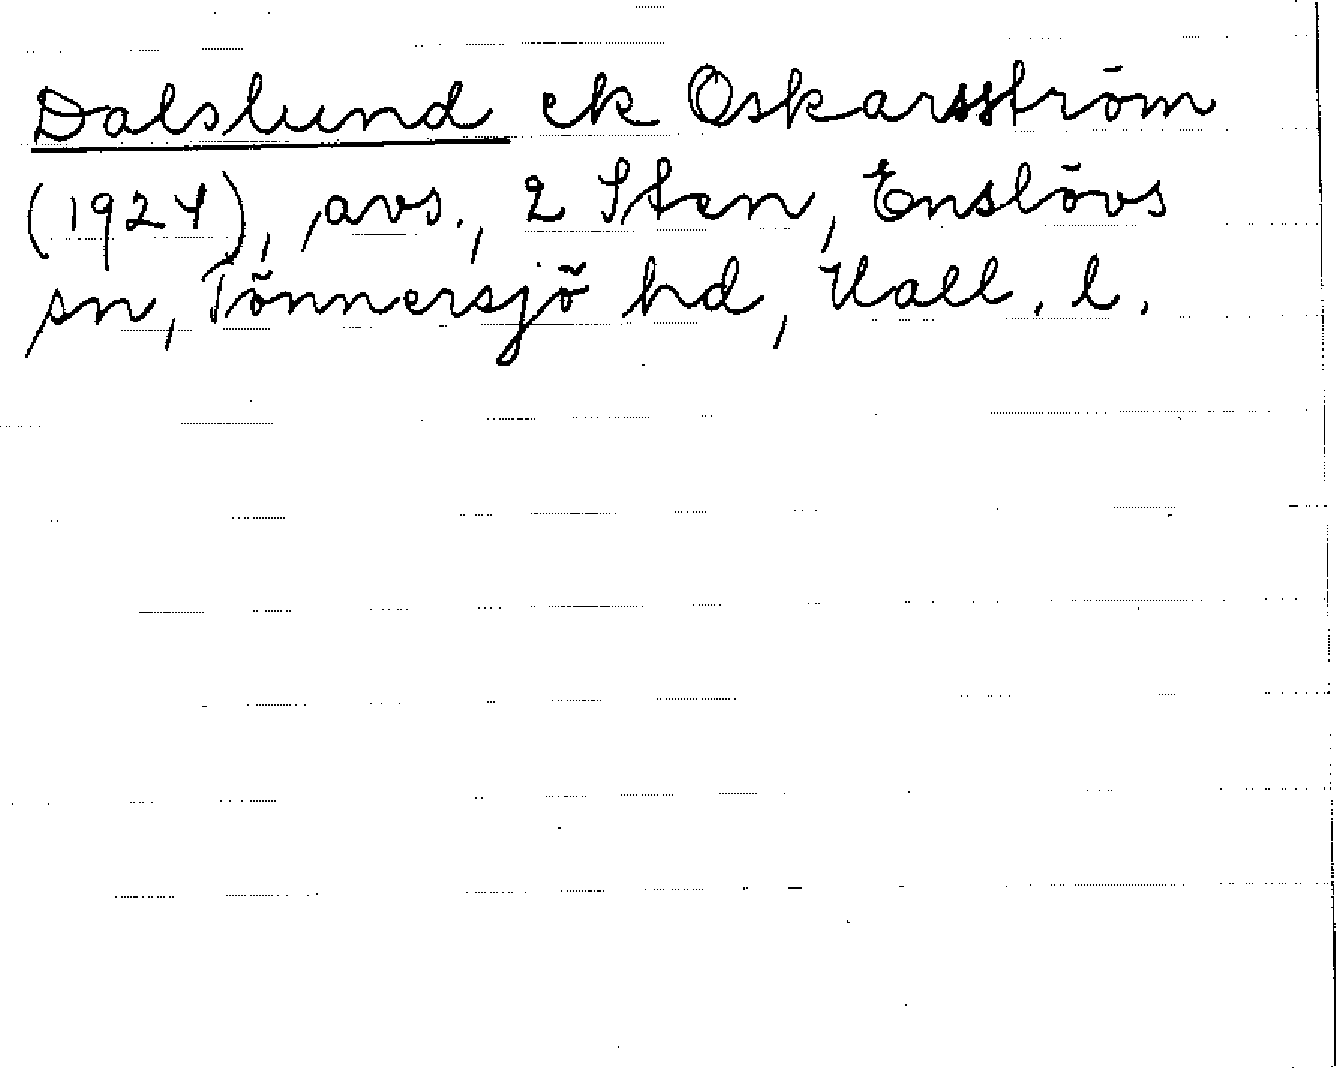 Dalslund ek Oskarsström
(1924), avs., 2 Sten, Enslövs
sn, Tönnersjö hd, Hall. l.